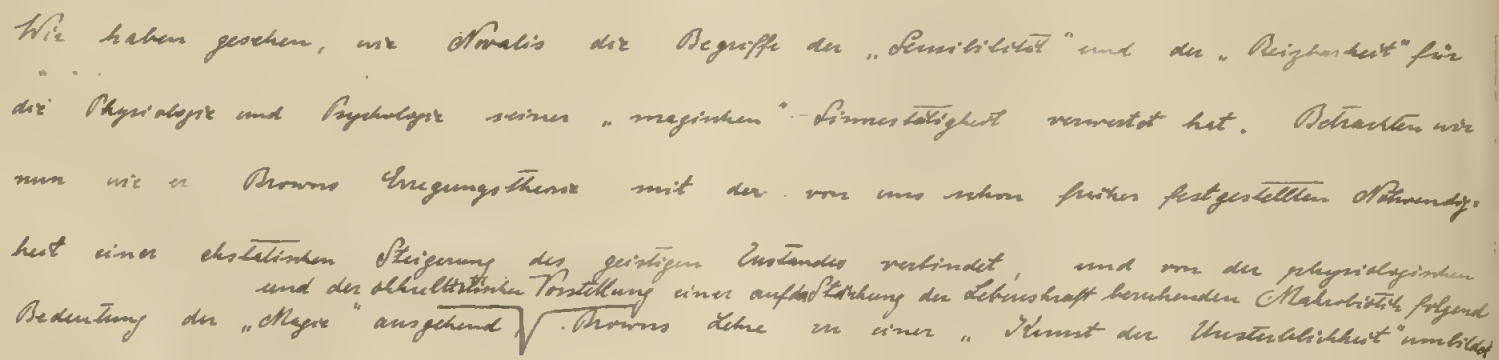 Wir haben gesehen, wie Novalis die Begriffe der „Sensibilität" und der „Reizbarkeit" für
die Physiologie und Psychologie seiner „magischen" Sinnestätigkeit verwertet hat. Betrachten wir
nun wie er Browns Erregungstheorie mit der von uns schon früher festgestellten Notwendig-
keit einer ekstatischen Steigerung des geistigen Zustandes verbindet, und von der physiologischen
und der okkultistischen Vorstellung einer auf der Stärkung der Lebenskraft beruhenden Makrobiotik folgend
Bedeutung der „Magie" ausgehend Browns Lehre zu einer „Kunst der Unsterblichkeit" umbildet